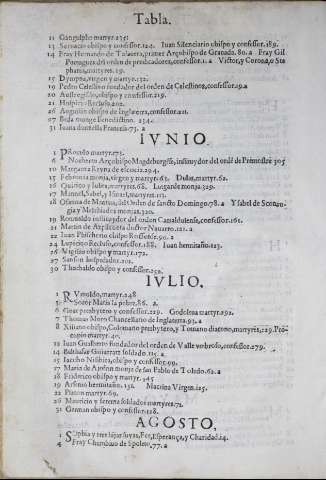 Tabla.
11 Gangulpho martyr.235.
13 Seruacio obispo y confessor.124. Iuan Silenciario obispo y confessor.189.
14 Fray Hernando de Talauera, primer Arçobispo de Granada. 80.a Fray Gil
Portugues del orden de predicadores, confessor.1.a Victor, y Corona,
martyres.19.
15 Dympna, virgen y martyr.132.
19 Pedro Celestino fundador del orden de Celestinos, confessor.29.a
20 obispo y confessor.219.
21 Recluso.202.
26 Augustin obispo de Inglaterra, confessor.221.
27 Beda monge Benedictino. 234.
31 Iuana donzella Francesa.73.a
IVNIO.
1 PRoculo martyr.175.
6 Norberto Arçobispo instituydor del ordē de 305
10 Margarita Reyna de escocia.294.
15 Febronia monja, virgen y martyr.62. Dulas, martyr.62.
16 Quirico y Iulita, martyres.68. Lutgarde monja.329.
17 Manuel, Sabel, y martyres.115.
18 Osanna de Mantua, del Orden de sancto Domingo.78.a Ysabel de
y monjas.320.
19 Romualdo instituydor del orden Camaldulense, confessor.161.
21 Martin de Azpilcueta doctor Nauarro.121.a
22 Iuan Phischerio obispo 90.a
24 Lupicino Recluso, confessor.188. Iuan hermitaño.123.
26 Vigilio obispo y martyr.172.
27 Sanson hospedador.201.
30 Theobaldo obispo y confessor.250.
IVLIO.
1 RVmoldo, martyr.248
5 Soror Maria la pobre.86.a
6 Goar presbytero y confessor.229. Godoleua martyr.292.
7 Thomas Moro Chanciller de Inglaterra.93.a
8 Kiliano obispo, Colomano presbytero, y Totnano diacono, martyres.229. Procopio
martyr.40.
12 Iuan Gualberto fundador del orden de Valle vmbroso, confessor.279.
14 Balthasar Guirartt soldado.115.a
15 Iacobo Nisibita, obispo y confessor.99.
17 Maria de Ajofrin monja de san Pablo de Toledo.62.a
18 Friderico obispo y martyr.245
19 Arsenio hermitaño.136. Macrina Virgen.125.
22 Platon martyr.69.
26 Mauricio y setenta soldados martyres.71.
31 German obispo y confessor.128.
AGOSTO.
1 SOphia y tres hijas suyas, Fee, Esperança, y Charidad.14.
4 Fray Chambaro de Spoleto.77.a